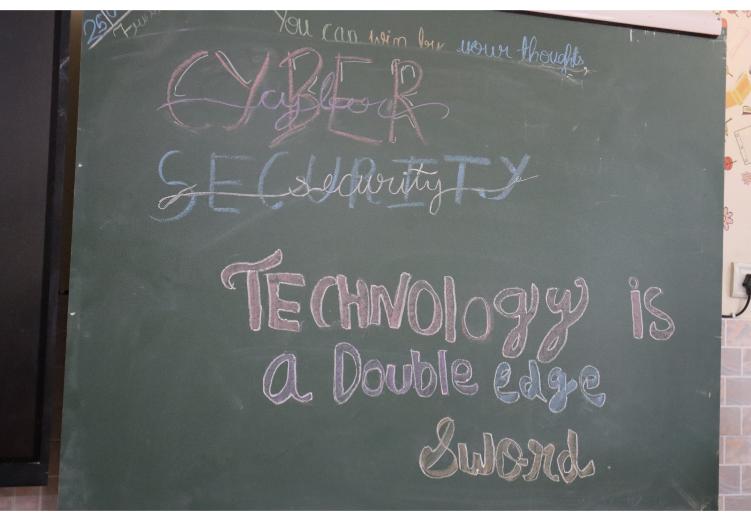 25
You can win by your thoughts
CYBER
cyber
SECURITY
security
TECHNOLOGY is
a Double edge
Sword